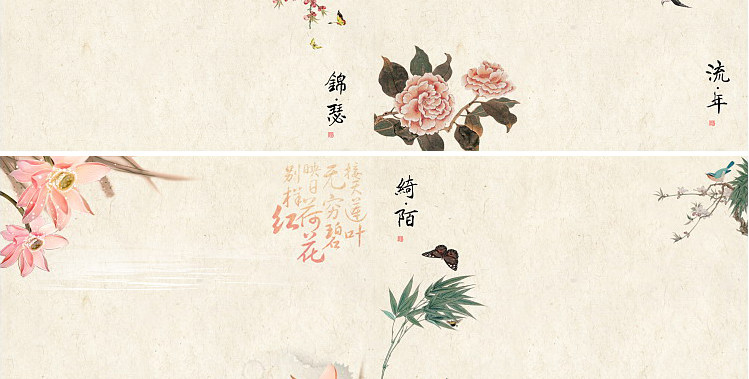 錦·瑟
流·年
接天莲叶
无穷碧
映日荷花
别样红
綺·陌